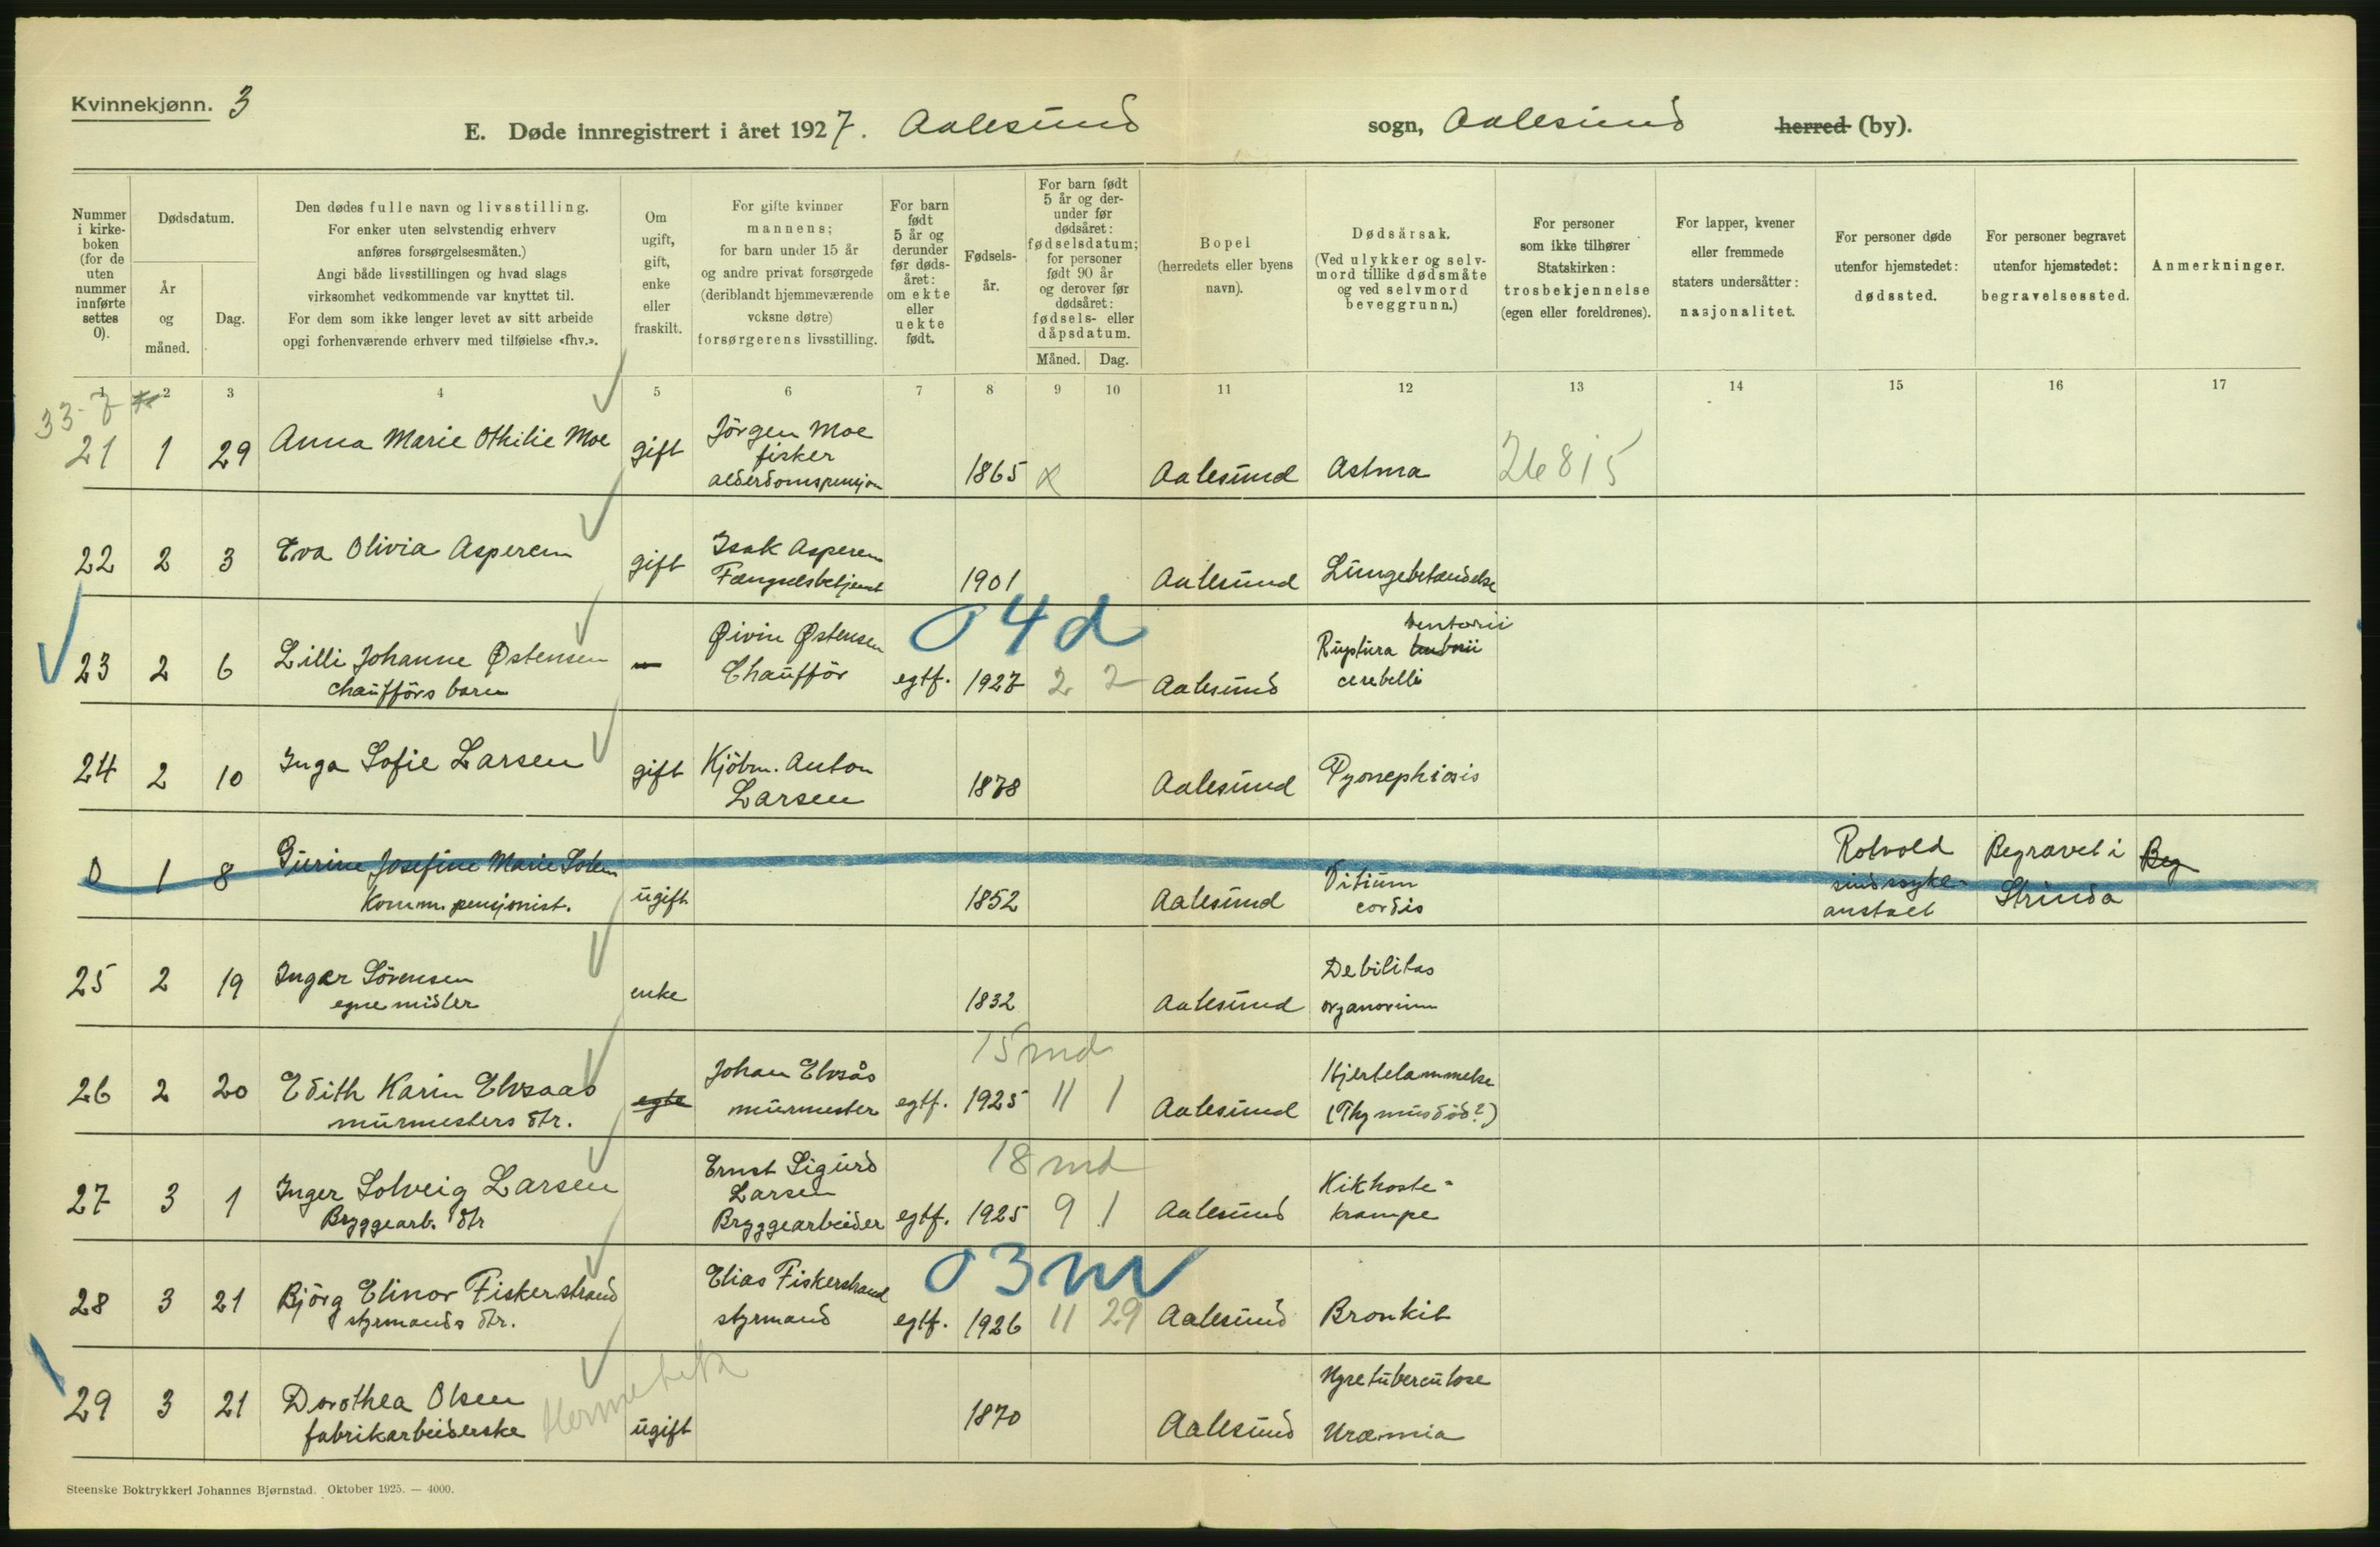 Kvinnekjønn. 3
E. Døde innregistrert i året 1927. Aalesund sogn, Aalesund herred (by).
Nummer i kirkeboken (for de uten nummer innførte settes 0).
Dødsdatum.
År og måned.
Dag.
Den dødes fulle navn og livsstilling.
For enker uten selvstendig erhverv
anføres forsørgelsesmåten.)
Angi både livsstillingen og hvad slags
virksomhet vedkommende var knyttet til.
For dem som ikke lenger levet av sitt arbeide
opgi forhenværende erhverv med tilføielse «fhv.».
Om ugift, gift, enke eller fraskilt.
For gifte kvinner
mannens;
for barn under 15 år
og andre privat forsørgede
(deriblandt hjemmeværende
voksne døtre)
forsørgerens livsstilling.
For barn født 5 år og derunder før dødsåret: om ekte eller uekte født.
Fødselsår.
For barn født 5 år og derunder før dødsåret: fødselsdatum; for personer født 90 år og derover før dødsåret: fødsels- eller dåpsdatum.
Måned. Dag.
Bopel
(herredets eller byens
navn).
Dødsårsak.
(Ved ulykker og selvmord tillike dødsmåte
og ved selvmord
beveggrunn.)
For personer
som ikke tilhører
Statskirken:
trosbekjennelse
(egen eller foreldrenes).
For lapper, kvener
eller fremmede
staters undersåtter:
nasjonalitet.
For personer døde
utenfor hjemstedet:
dødssted.
For personer begravet
utenfor hjemstedet:
begravelsessted.
Anmerkninger.
1 2 3 4 5 6 7 8 9 10 11 12 13 14 15 16 17
21 1 29 Anna Marie Othilie Moe gift Jörgen Moe fisker alderdomspensjon 1865 x Aalesund Astma 26815
22 2 3 Eva Olivia Asperem gift Isak Asperem Fængselsbetjent 1901 Aalesund Lungebetændelse
04d
23 2 6 Lilli Johanne Østensen chaufförs barn – Øivin Østensen Chaufför egtf. 1927 2 2 Aalesund Ruptura tentorii cerebelli
24 2 10 Inga Sofie Larsen gift Kjöbm. Anton Larsen 1878 Aalesund Pyonephrosis
0 1 8 Gurine Josefine Marie Solem Komm. pensjonist. ugift 1852 Aalesund Vitium cordis Rotvold sindssykeanstalt Begravet i Strinda Beg
25 2 19 Inger Sörensen egne midler enke 1832 Aalesund Debilitas organorum
15 md
26 2 20 Edith Karin Elvsaas murmesters dtr. egte Johan Elvsås murmester egtf. 1925 11 1 Aalesund Hjertelammelse (Thymusdöd?)
18 md
27 3 1 Inger Solveig Larsen Bryggearb. dtr Ernst Sigurd Larsen Bryggearbeider egtf. 1925 9 1 Aalesund Kikhoste-krampe
03m
28 3 21 Björg Elinor Fiskerstrand styrmands dtr. Elias Fiskerstrand styrmand egtf. 1926 11 29 Aalesund Bronkit
29 3 21 Dorothea Olsen fabrikarbeiderske ugift 1870 Aalesund Nyretuberculose Uræmia
Steenske Boktrykkeri Johannes Bjørnstad. Oktober 1925. — 4000.